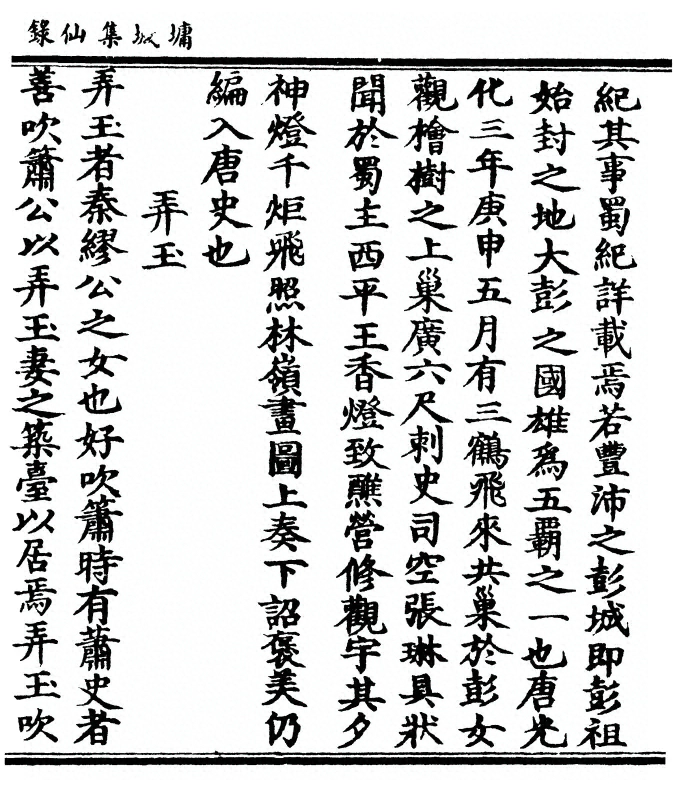 墉城集仙錄
紀其事蜀紀詳載焉若豐沛之彭城即彭祖
始封之地大彭之國雄爲五覇之一也唐光
化三年庚申五月有三鶴飛來共巢於彭女
觀檜樹之上巢廣六尺刺史司空張琳具狀
聞於蜀主西平王香燈致醮營修觀宇其夕
神燈千炬飛照林嶺畫圖上奏下詔襃美仍
編入唐史也
弄玉
弄玉者秦繆公之女也好吹簫時有蕭史者
善吹簫公以弄玉妻之築臺以居焉弄玉吹